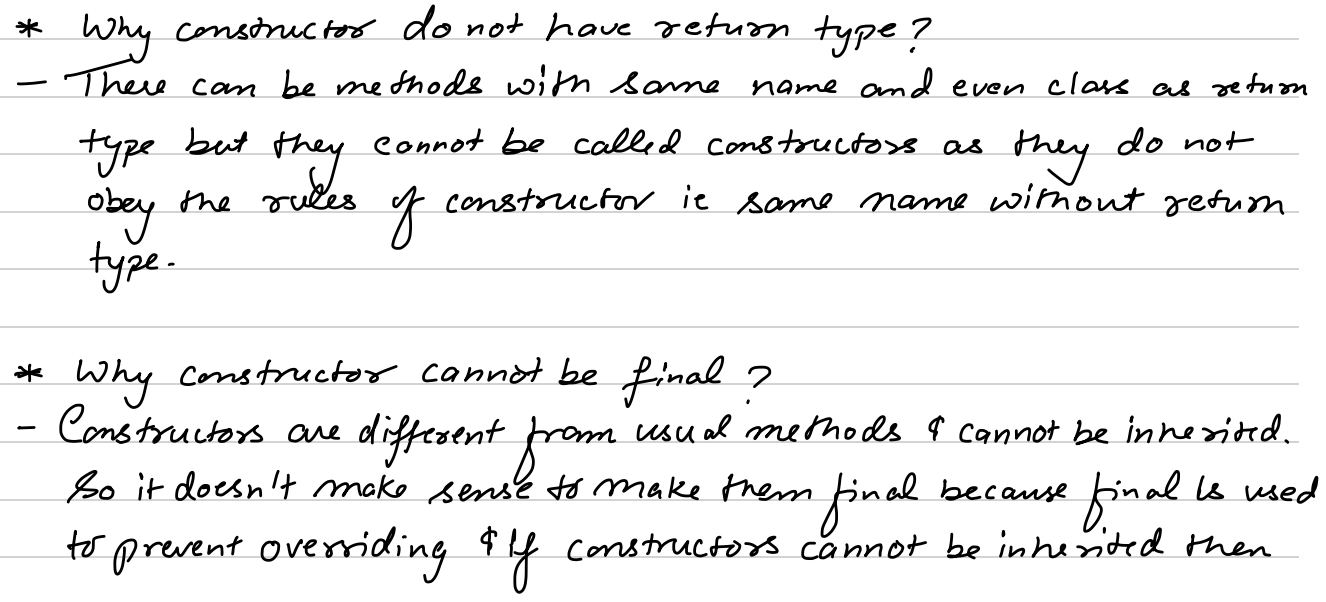 * Why constructor do not have return type?
- There can be methods with same name and even class as return
type but they cannot be called constructors as they do not
obey the rules of constructor ie same name without return
type.
* Why constructor cannot be final ?
- Constructors are different from usual methods & cannot be inherited.
So it doesn't make sense to make them final because final is used
to prevent overriding & If constructors cannot be inherited then